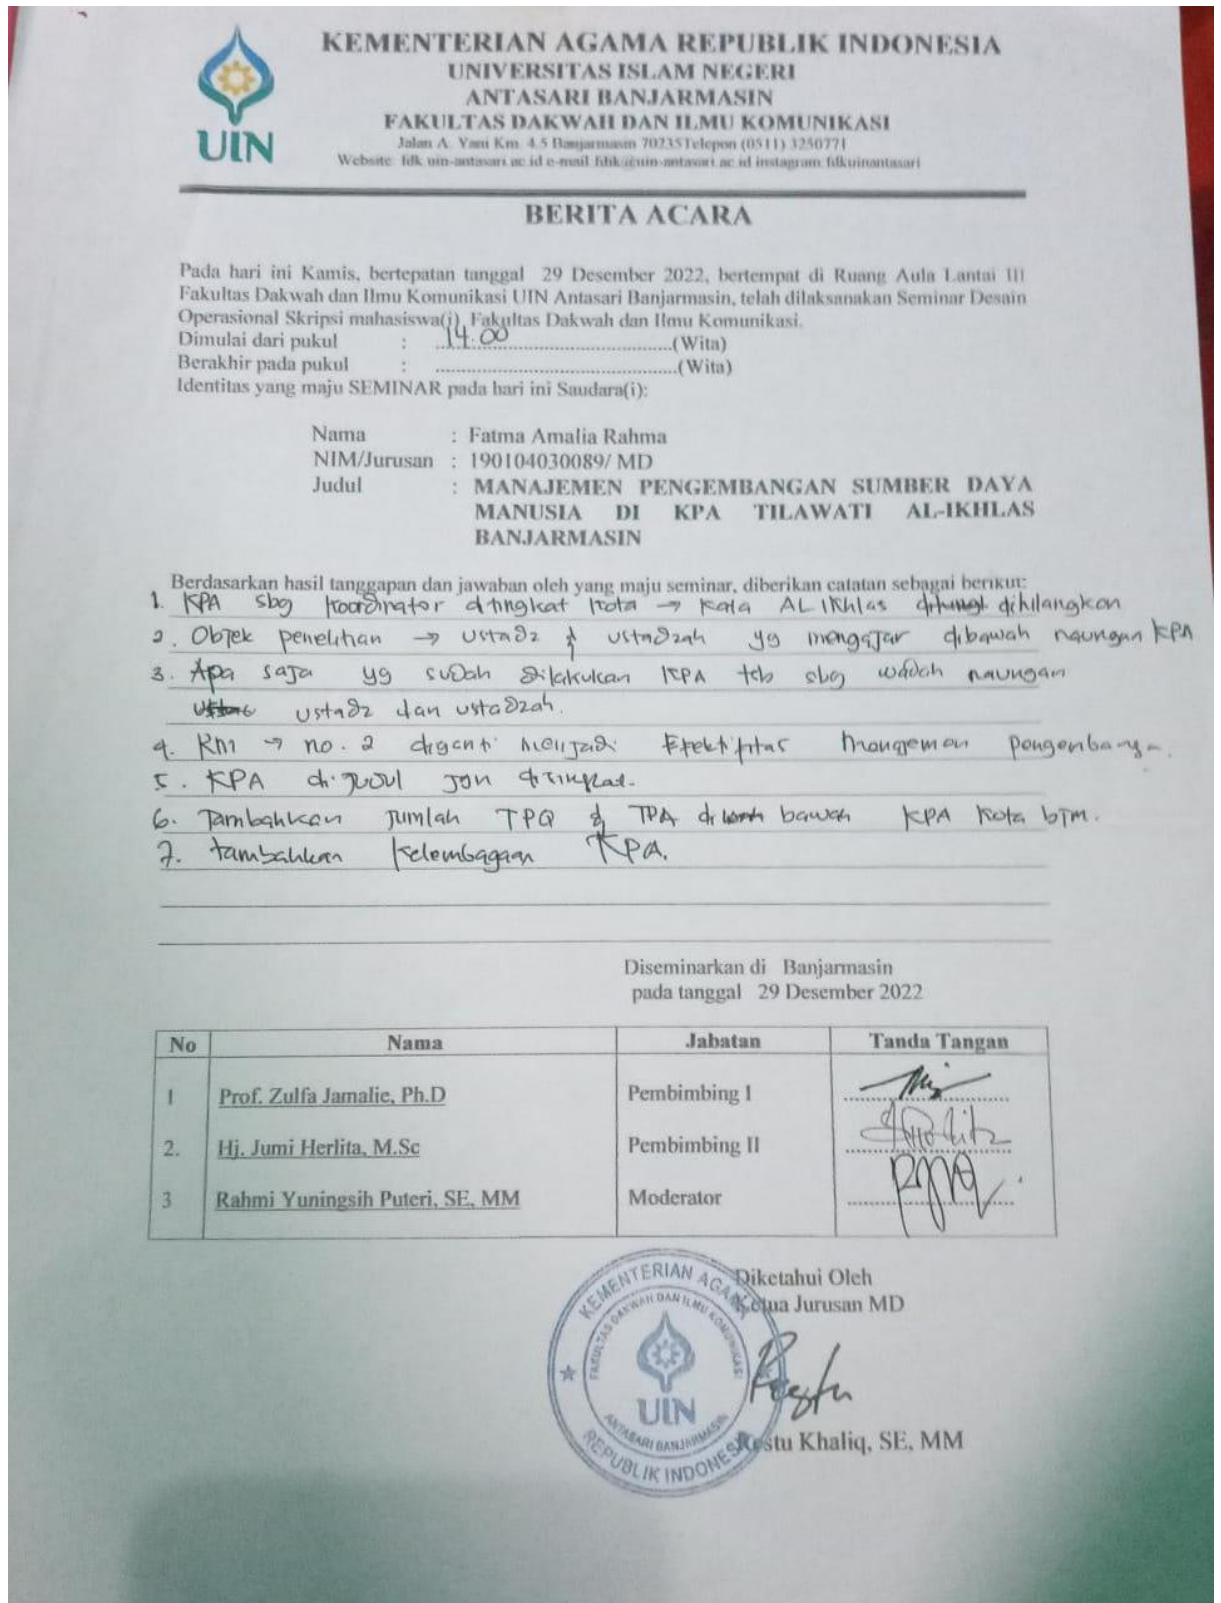 KEMENTERIAN AGAMA REPUBLIK INDONESIA
UNIVERSITAS ISLAM NEGERI
ANTASARI BANJARMASIN
FAKULTAS DAKWAH DAN ILMU KOMUNIKASI
Jalan A. Yani Km. 4.5 Banjarmasin 70235Telepon (0511) 3250771
Website: fdk.uin-antasari.ac.id e-mail: fdik@uin-antasari.ac.id instagram: fdkuinantasari
UIN
BERITA ACARA
Pada hari ini Kamis, bertepatan tanggal 29 Desember 2022, bertempat di Ruang Aula Lantai III
Fakultas Dakwah dan Ilmu Komunikasi UIN Antasari Banjarmasin, telah dilaksanakan Seminar Desain
Operasional Skripsi mahasiswa(i) Fakultas Dakwah dan Ilmu Komunikasi.
Dimulai dari pukul : 14.00 (Wita)
Berakhir pada pukul : (Wita)
Identitas yang maju SEMINAR pada hari ini Saudara(i):
Nama : Fatma Amalia Rahma
NIM/Jurusan : 190104030089/ MD
Judul : MANAJEMEN PENGEMBANGAN SUMBER DAYA
MANUSIA DI KPA TILAWATI AL-IKHLAS
BANJARMASIN
Berdasarkan hasil tanggapan dan jawaban oleh yang maju seminar, diberikan catatan sebagai berikut:
1. KPA sbg koordinator ditingkat kota → kata AL IKhlas dihilangkan
2. Objek penelitian → ustadz & ustadzah yg mengajar dibawah naungan KPA
3. Apa saja yg sudah dilakukan KPA tsb sbg wadah naungan
ustadz dan ustadzah.
4. RM → no. 2 diganti menjadi Efektifitas
5. KPA di judul jgn disingkat.
6. Tambahkan jumlah TPQ & TPA di bawah KPA Kota bjm.
7. tambahkan kelembagaan KPA.
Diseminarkan di Banjarmasin
pada tanggal 29 Desember 2022
No Nama Jabatan Tanda Tangan
1 Prof. Zulfa Jamalie, Ph.D Pembimbing I
2. Hj. Jumi Herlita, M.Sc Pembimbing II
3 Rahmi Yuningsih Puteri, SE, MM Moderator
Diketahui Oleh
Ketua Jurusan MD
KEMENTERIAN AGAMA
FAKULTAS DAKWAH DAN ILMU KOMUNIKASI
UIN
ANTASARI BANJARMASIN
REPUBLIK INDONESIA
Restu Khaliq, SE, MM